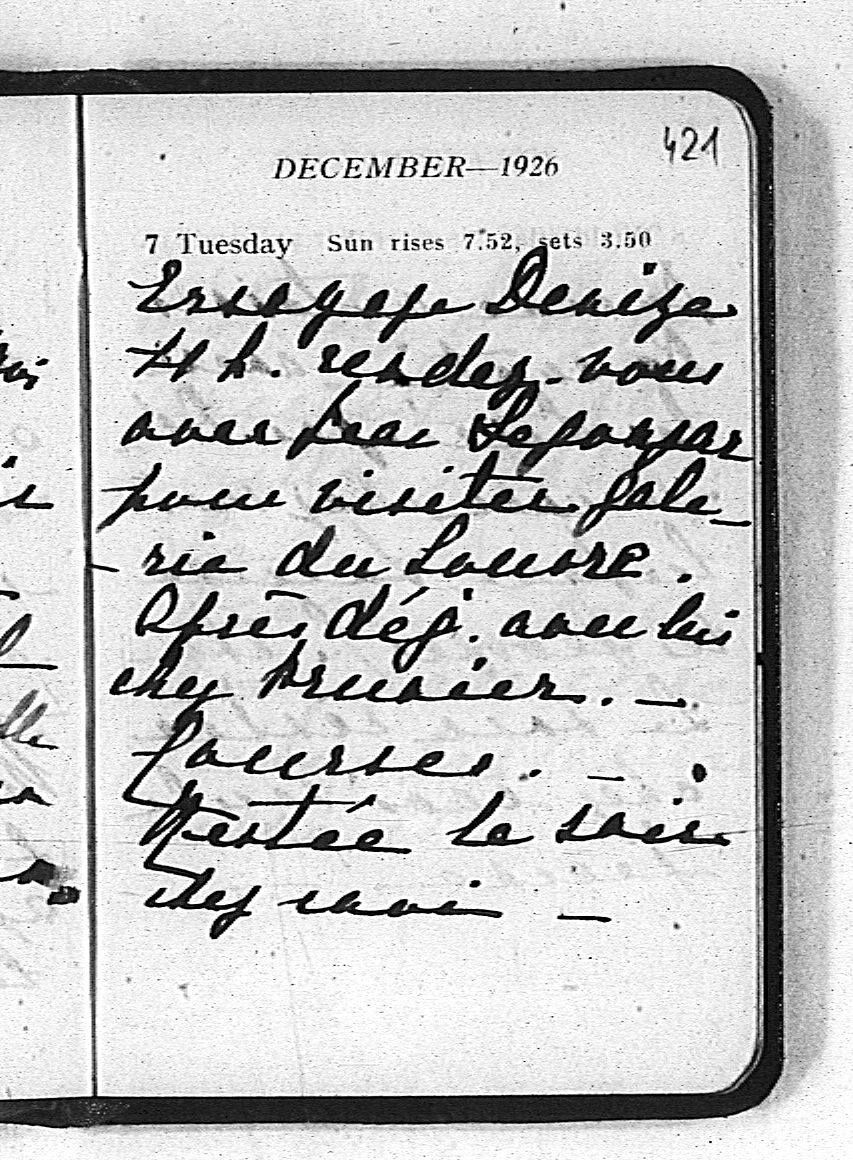 421
DECEMBER—1926
7 Tuesday Sun rises 7.52, sets 3.50
Essayage Denize
11 h. rendez-vous
avec
pour visiter Gale-
rie du Louvre.
Après déj. avec lui
chez Prunier. —
Courses. —
Restée le soir
chez moi —